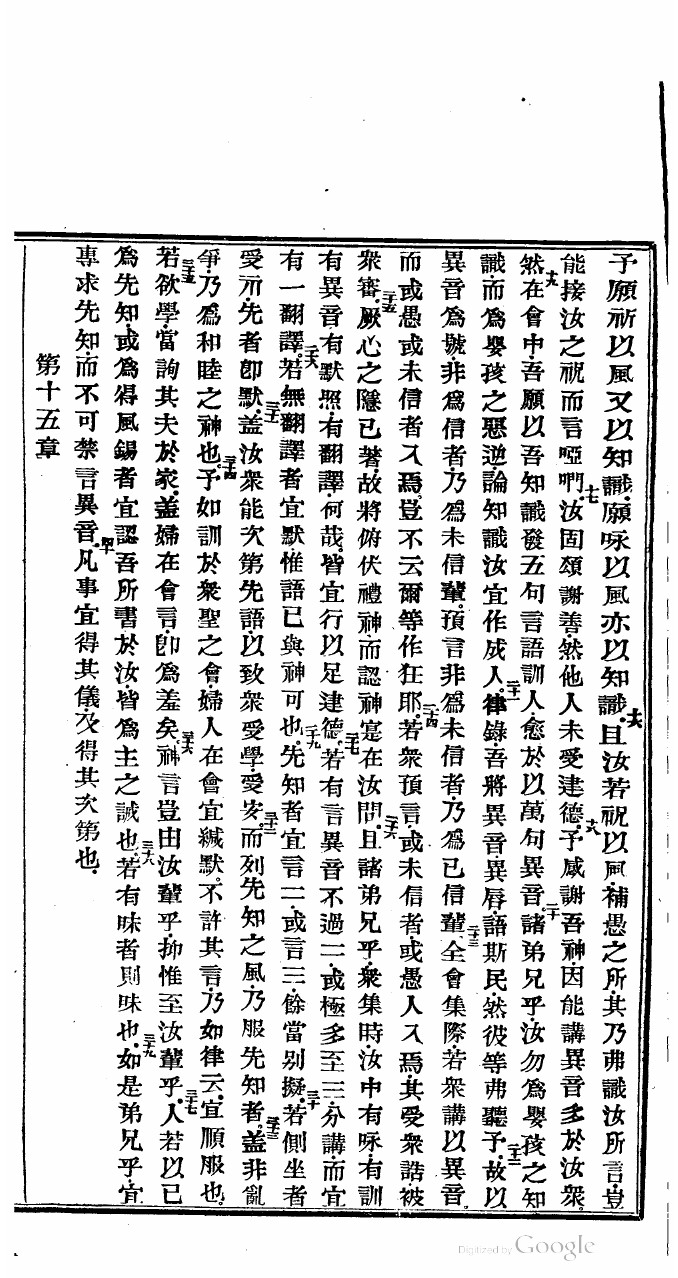 予願祈以風又以知識.願咏以風亦以知識.十六且汝若祝以風.補愚之所.其乃弗識汝所言.豈
能接汝之祝而言啞們.十七汝固頌謝善.然他人未受建德.十八予感謝吾神.因能講異音多於汝衆.
十九然在會中.吾願以吾知識發五句言語訓人.愈於以萬句異音.二十諸弟兄乎.汝勿爲嬰孩之知
識.而爲嬰孩之惡逆.論知識汝宜作成人.二十一律錄.吾將異音異唇.語斯民.然彼等弗聽予.二十二故以
異音爲號.非爲信者.乃爲未信輩.預言非爲未信者.乃爲已信輩.二十三全會集際.若衆講以異音.
而或愚或未信者入焉.豈不云爾等作狂耶.二十四若衆預言.或未信者或愚人入焉.其受衆誥被
衆審.二十五厥心之隱已著.故將俯伏禮神而認神寔在汝間.二十六且諸弟兄乎.衆集時汝中有咏.有訓
有異音.有默照.有翻譯.何哉.皆宜行以足建德.二十七若有言異音不過二.或極多至三.分講而宜
有一翻譯.二十八若無翻譯者宜默.惟語已與神可也.二十九先知者宜言二.或言三.餘當别擬.三十若側坐者
受示.先者卽默.三十一蓋汝衆能次第先語.以致衆受學受安.三十二而列先知之風.乃服先知者.三十三蓋非亂
爭.乃爲和睦之神也.三十四予如訓於衆聖之會.婦人在會宜緘默.不許其言.乃如律云.宜順服也.
三十五若欲學.當詢其夫於家.蓋婦在會言.卽爲羞矣.三十六神言豈由汝輩乎.抑惟至汝輩乎.三十七人若以已
爲先知.或爲得風錫者.宜認吾所書於汝.皆爲主之誡也.三十八若有昧者則昧也.三十九如是弟兄乎.宜
專求先知.而不可禁言異音.四十凡事宜得其儀.及得其次第也.
第十五章
Digitized by Google